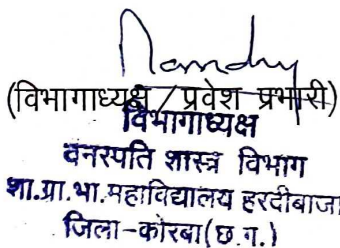 (विभागाध्यक्ष / प्रवेश प्रभारी)
विभागाध्यक्ष
वनस्पति शास्त्र विभाग
शा.ग्रा.भा.महाविद्यालय हरदीबाजा
जिला-कोरबा(छ.ग.)